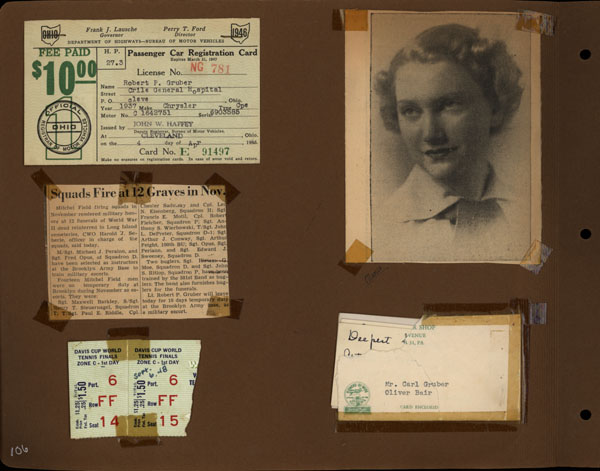 OHIO
Frank J. Lausche
Governor
Perry T. Ford
Director
1946
DEPARTMENT OF HIGHWAYS—BUREAU OF MOTOR VEHICLES
FEE PAID
$10.00
H. P.
27.3
Passenger Car Registration Card
Expires March 31, 1947
License No. NG 781
Name Robert P. Gruber
Street Crile General Hospital
P. O. Cleve, Ohio.
Year 1937 Make Chrysler Type Cpe
Motor No. C 1642751 Serial 6903565
Issued by JOHN W. HAFFEY
Deputy Registrar, Bureau of Motor Vehicles.
At CLEVELAND, Ohio.
on the 4 day of Apr 1946.
Card No. E 91497
Make no erasures on registration cards. In case of error void and return.
OFFICIAL
OHIO
REGISTRAR OF MOTOR VEHICLES
Squads Fire at 12 Graves in Nov.
Mitchel Field firing squads in
November rendered military honors
at 12 funerals of World War
II dead reinterred in Long Island
cemeteries, CWO Harold J.
officer in charge of the
squads, said today.
M/Sgt. Michael J. Persian, and
Sgt Fred Opus, of Squadron D,
have been selected as instructors
at the Brooklyn Army Base to
train military escorts.
Fourteen Mitchel Field men
were on temporary duty at
Brooklyn during November as
escorts. They were:
Sgt. Maxwell Barkley, S/Sgt.
Henry T. Steuernagel, Squadron
T/Sgt. Paul E. Riddle, Cpl.
Chester Sadusky and Cpl. Le
N. Eisenberg, Squadron B; Sgt.
Francis E. Motil, Cpl. Robert
Fletcher, Squadron P; Sgt. An
thony S. Wierbowski, T/Sgt. John
L. DePretor, Squadron D-1; Sgt
Arthur J. Conway, Sgt. Arthur
Feight, 180th BU; Sgt. Opus, Sgt.
Persian, and Sgt. Edward J.
Sweeney, Squadron D.
Two buglers, Sgt.
Mee, Squadron D, and Sgt. John
S. Hilton, Squadron P, have been
trained by the Mitchel Band as bug-
lers. The band also furnishes bug-
lers for the funerals.
Lt. Robert P. Gruber will leave
today for 15 days temporary duty
at the Brooklyn Army Base, as
a military escort.
DAVIS CUP WORLD
TENNIS FINALS
ZONE C - 1st DAY
Port. 6
Row FF
Seat 14
$1.50
DAVIS CUP WORLD
TENNIS FINALS
ZONE C - 1st DAY
Sept. 48
Port. 6
Row FF
Seat 15
$1.50
SHOP
AVENUE
H, PA.
Deepest
Mr. Carl Gruber
Oliver Bair
CARD ENCLOSED
106